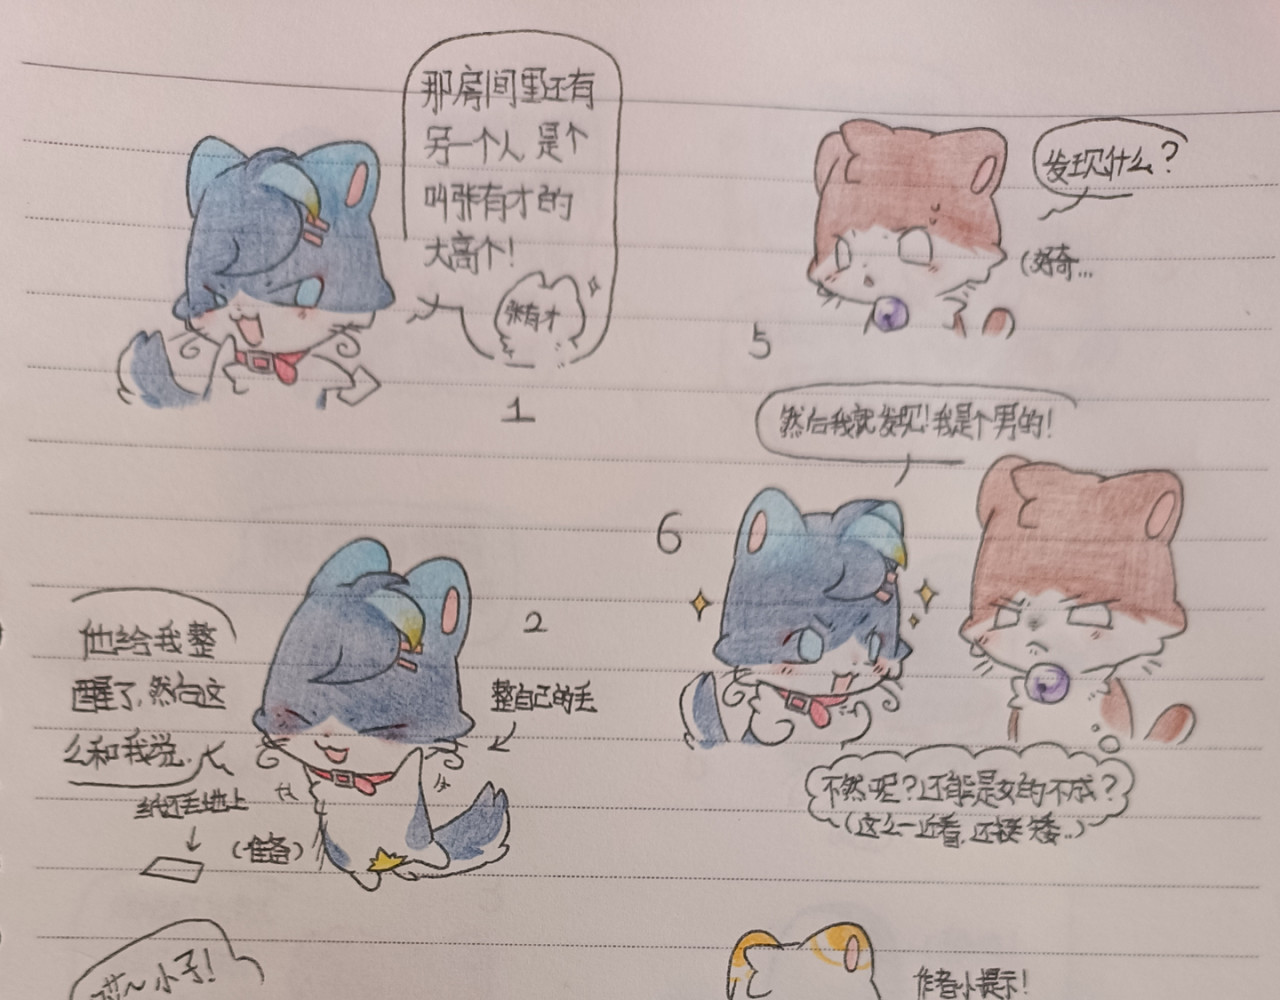 那房间里还有
另一个人 是个
叫张有才的
大高个!
张有才
1
他给我整
醒了,然后这
么和我说.
2
整自己的毛
纸还丢地上
(准备)
哎~小子!
5
发现什么?
(好奇...
6
然后我就发现!我是个男的!
不然呢?还能是女的不成?
(这么一近看,还挺矮..)
作者小提示!